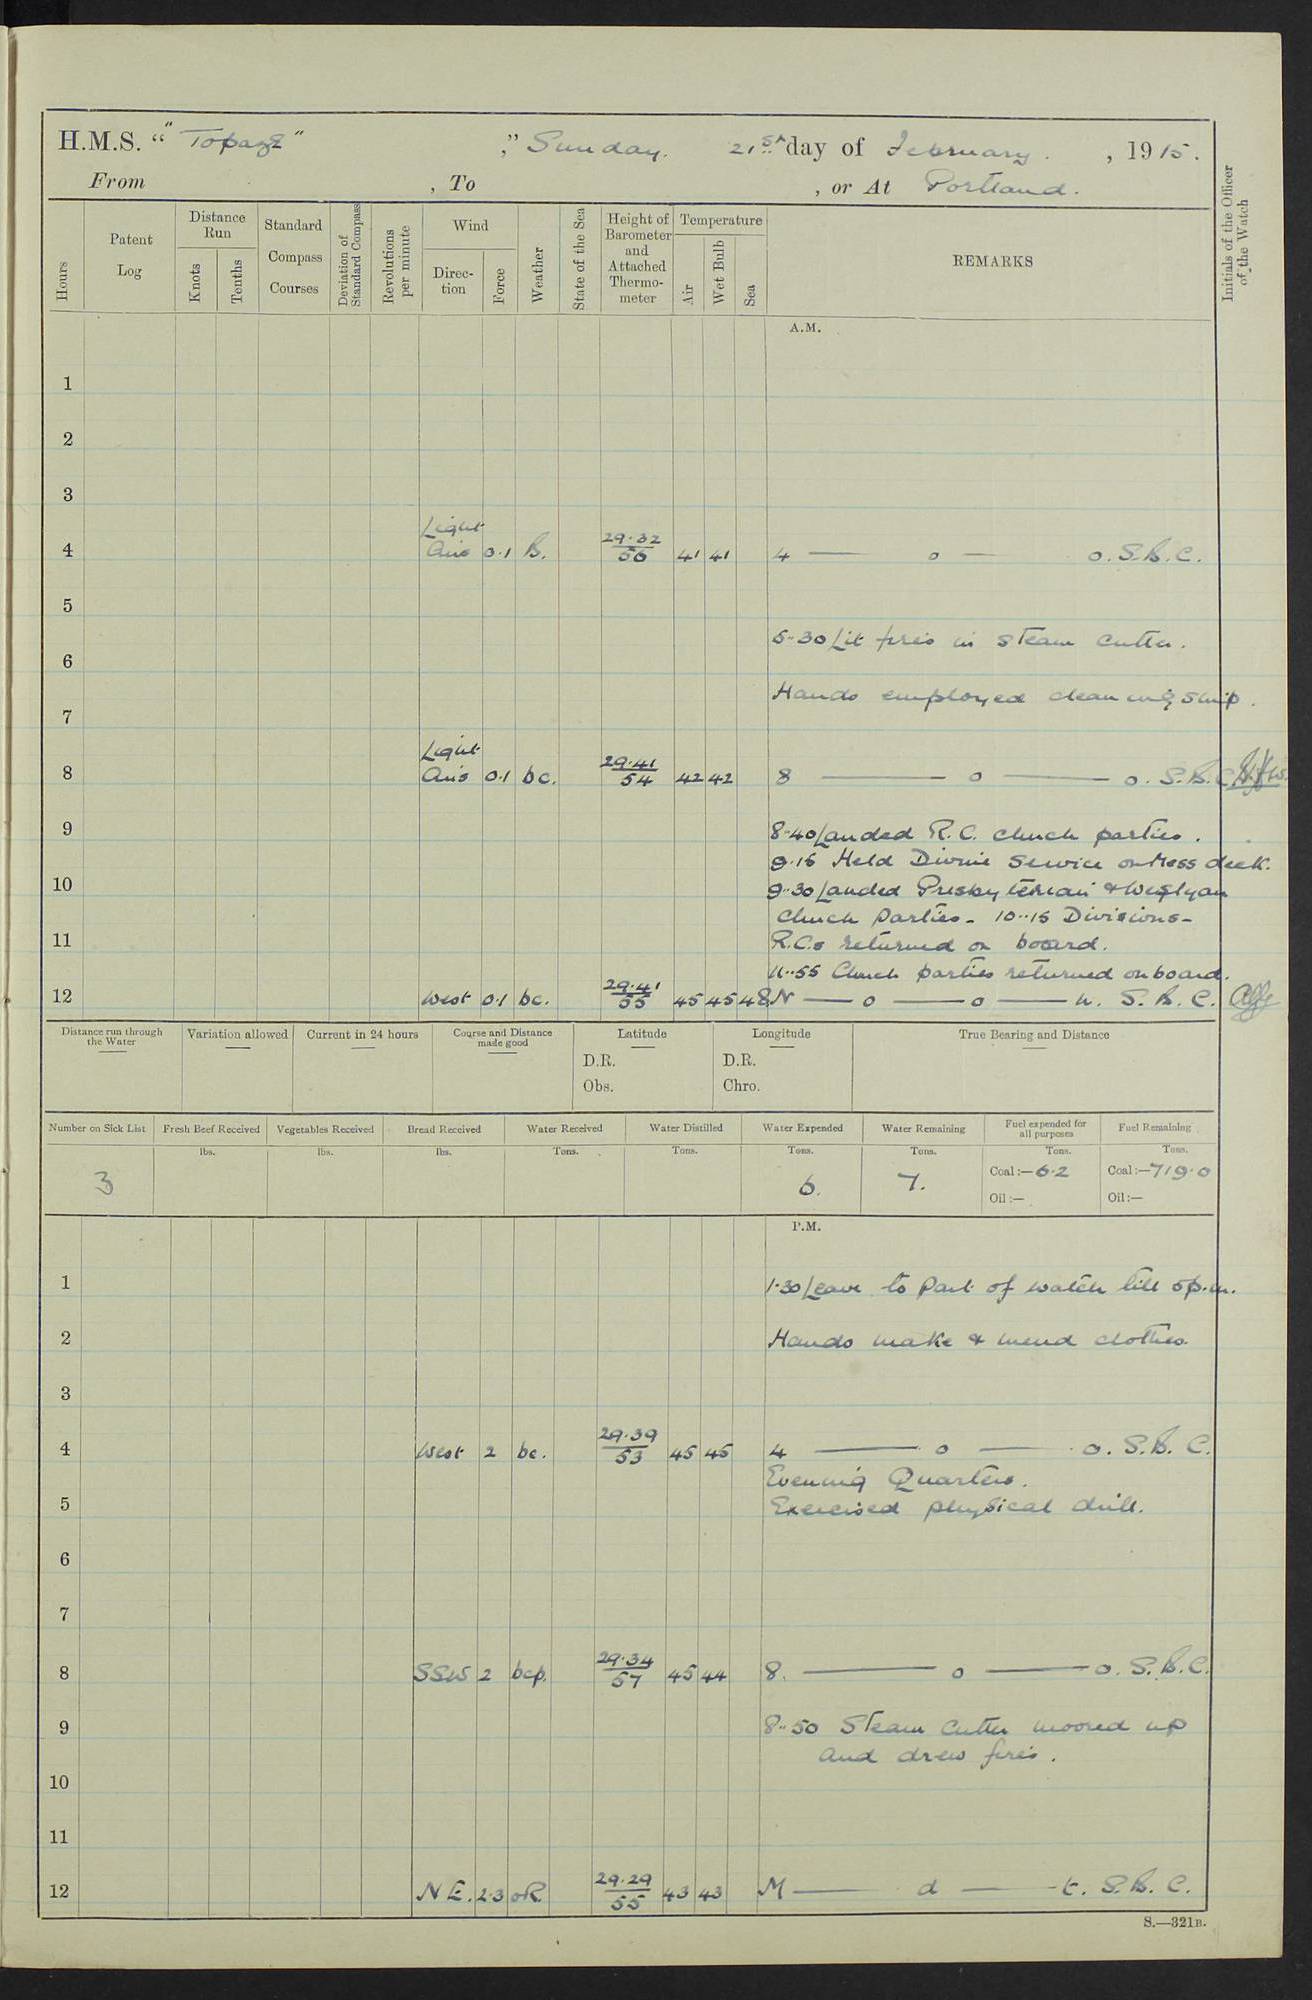 H.M.S. “ "Topaze" ,” Sunday. 21st day of February. , 1915.
From , To , or At Portland.
Hours
Patent Log
Distance Run
Knots
Tenths
Standard Compass Courses
Deviation of Standard Compass
Revolutions per minute
Wind
Direction
Force
Weather
State of the Sea
Height of Barometer and Attached Thermometer
Temperature
Air
Wet Bulb
Sea
REMARKS
Initials of the Officer of the Watch
A.M.
1
2
3
4 Light Airs 0.1 B. 29.32 56 41 41 4 — o — o. S.B.C.
5
5.30 Lit fires in steam cutter.
6
Hands employed cleaning ship.
7
8 Light Airs 0.1 bc. 29.41 54 42 42 8 — o — o. S.B.C
9 8.40 Landed R.C. church parties.
9.15 Held Divine Service on Mess deck.
10 9.30 Landed Presbyterian & Weslyan
Church Parties - 10.15 Divisions -
11 R.C.s returned on board.
11.55 Church parties returned onboard.
12 West 0.1 bc. 29.41 55 45 45 48 N — o — o — n. S.B.C.
Distance run through the Water
Variation allowed
Current in 24 hours
Course and Distance made good
Latitude
D.R.
Obs.
Longitude
D.R.
Chro.
True Bearing and Distance
Number on Sick List
Fresh Beef Received
Vegetables Received
Bread Received
Water Received
Water Distilled
Water Expended
Water Remaining
Fuel expended for all purposes
Fuel Remaining
lbs. lbs. lbs. Tons. Tons. Tons. Tons. Tons. Tons.
3 6. 7. Coal:—6.2 Coal:—719.0
Oil:— Oil:—
P.M.
1 1.30 Leave to part of watch till 5p.m.
2 Hands make & mend clothes.
3
4 West 2 bc. 29.39 53 45 45 4 — o — o. S.B.C.
Evening Quarters.
5 Exercised physical drill.
6
7
8 SSW 2 bcp. 29.34 57 45 44 8. — o — o. S.B.C.
9 8.50 Steam Cutter moored up
and drew fires.
10
11
12 NE. 2.3 oR 29.29 55 43 43 M — d — t. S.B.C.
S.—321B.